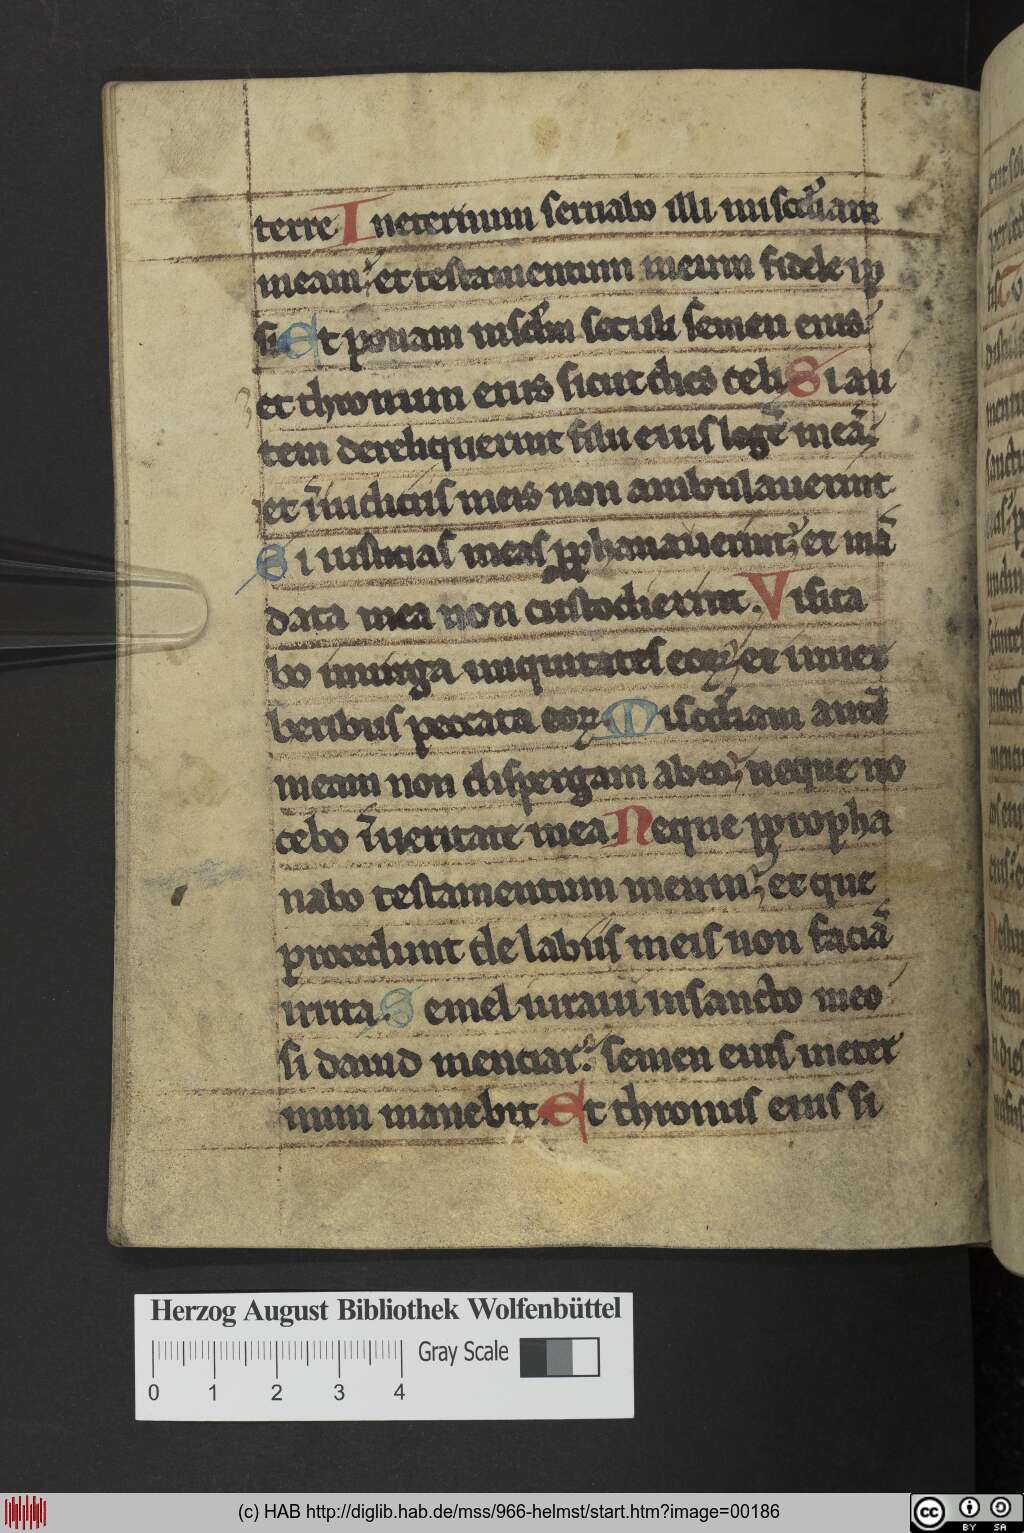 terre In eternum seruabo illi misc̄diam
meam: et testamentum meum fidele ip
si Et ponam insc̄lm seculi semen eius:
et thronum eius sicut dies celi Si au
tem dereliquerint filii eius legē meā:
et ī iudiciis meis non ambulauerint
Si iusticias meas pphanauerint: et mā
data mea non custodierint. Visita
bo inuirga iniquitates eoꝝ: et inuer
beribus peccata eoꝝ. Misc̄diam autē
meam non dispergam abeo: neque no
cebo ī ueritate mea. Neque ppropha
nabo testamentum meum: et que
procedunt de labiis meis non faciā
irrita Semel iuraui insancto meo
si dauid mentiar: semen eius ineter
num manebit. Et thronus eius si
Herzog August Bibliothek Wolfenbüttel
Gray Scale
0 1 2 3 4
(c) HAB http://diglib.hab.de/mss/966-helmst/start.htm?image=00186
cc BY SA